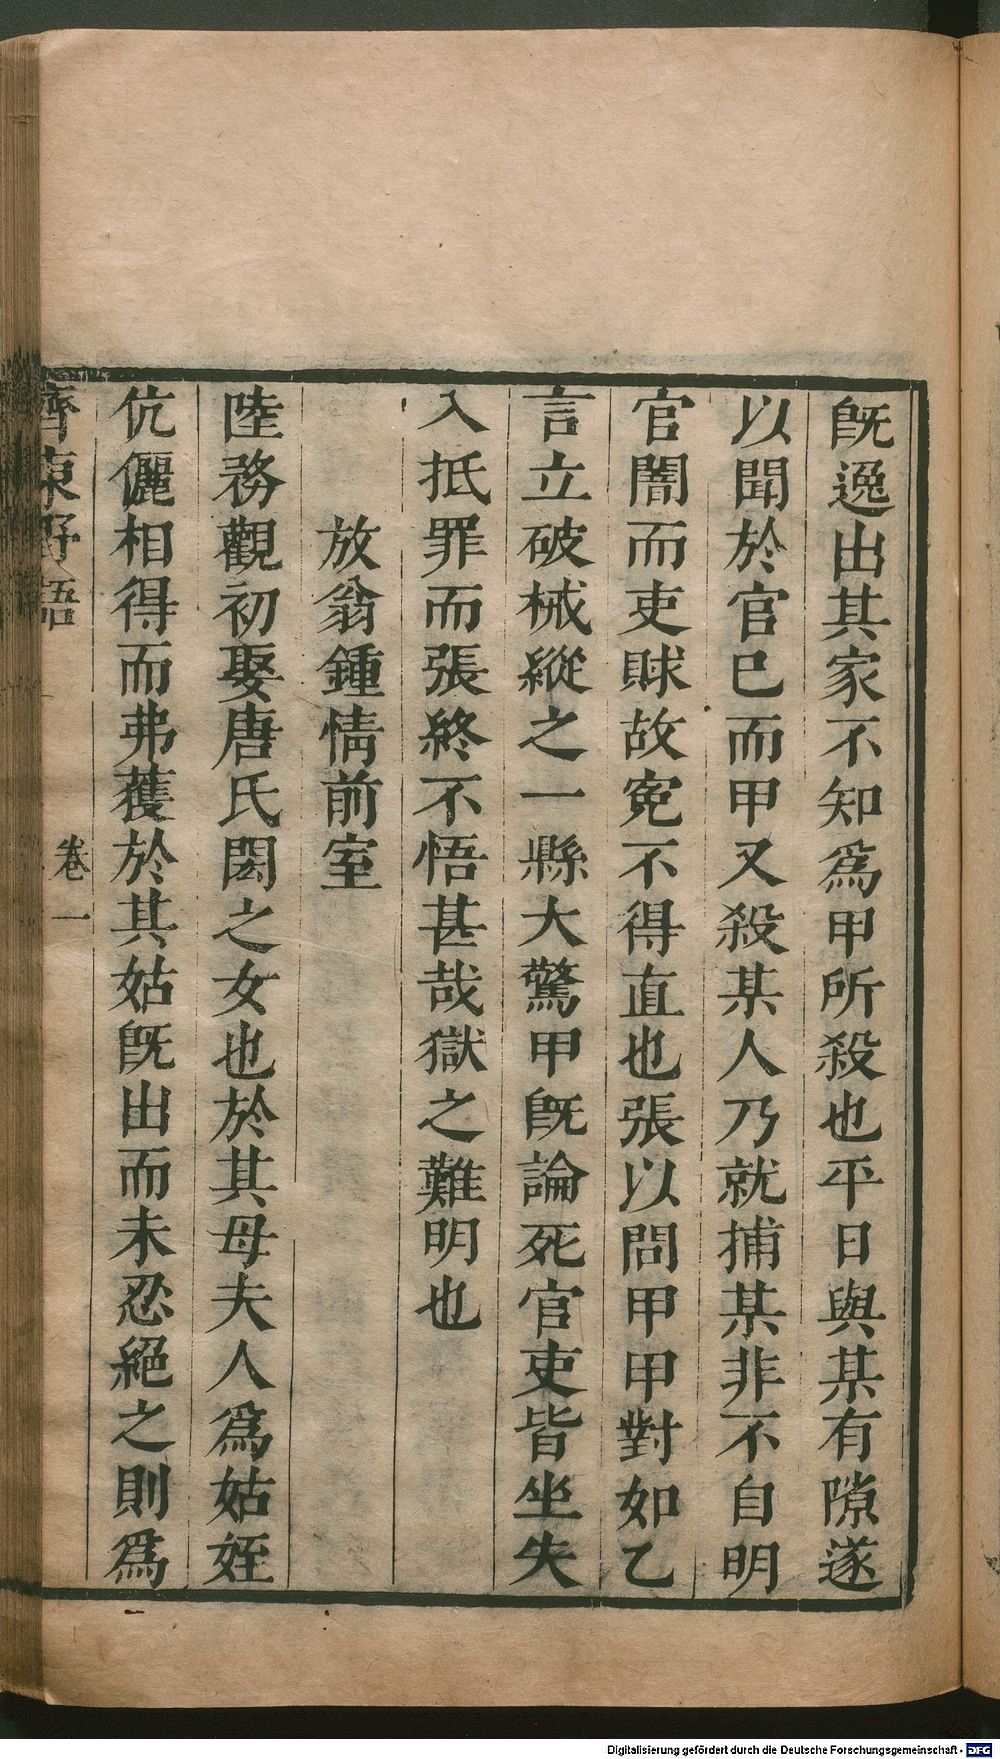 旣逸出其家不知爲甲所殺也平日與某有隙遂
以聞於官巳而甲又殺某人乃就捕某非不自明
官闇而吏賕故寃不得直也張以問甲甲對如乙
言立破械縱之一縣大驚甲旣論死官吏皆坐失
入抵罪而張終不悟甚哉獄之難明也
放翁鍾情前室
陸務觀初娶唐氏閎之女也於其母夫人爲姑姪
伉儷相得而弗獲於其姑旣出而未忍絕之則爲
齊東野語 卷一
Digitalisierung gefördert durch die Deutsche Forschungsgemeinschaft - DFG